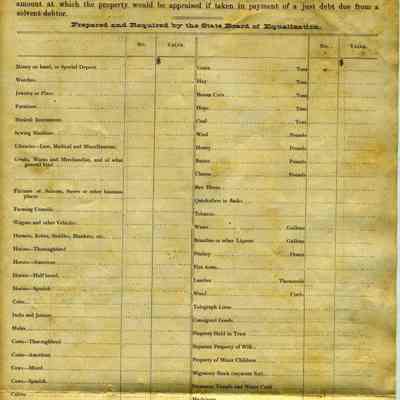 amount at which the property would be appraised if taken in payment of a just debt due from a
solvent debtor.
Prepared and Required by the State Board of Equalization.
No. Value. No. Value.
$ $
Money on hand, or Special Deposit
Watches
Jewelry or Plate
Furniture
Musical Instruments
Sewing Machines
Libraries—Law, Medical and Miscellaneous
Goods, Wares and Merchandise, and of what
general kind
Fixtures of Saloons, Stores or other business
places
Farming Utensils
Wagons and other Vehicles
Harness, Robes, Saddles, Blankets, etc.
Horses—Thoroughbred
Horses—American
Horses—Half breed
Horses—Spanish
Colts
Jacks and Jennies
Mules
Cows—Thoroughbred
Cows—American
Cows—Mixed
Cows—Spanish
Calves
Grain Tons
Hay Tons
Broom Corn Tons
Hops Tons
Coal Tons
Wool Pounds
Honey Pounds
Butter Pounds
Cheese Pounds
Bee Hives
Quicksilver in flasks
Tobacco
Wines Gallons
Brandies or other Liquors Gallons
Poultry Dozen
Fire Arms
Lumber Thousands
Wood Cords
Telegraph Lines
Consigned Goods
Property Held in Trust
Separate Property of Wife
Property of Minor Children
Migratory Stock